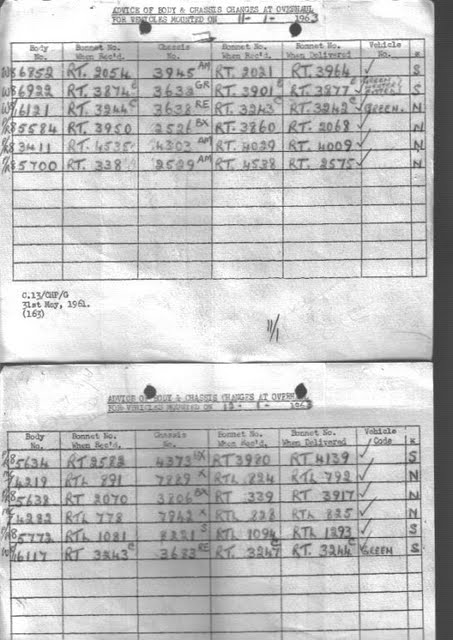 ADVICE OF BODY & CHASSIS CHANGES AT OVERHAUL
FOR VEHICLES MOUNTED ON 11 - 1 - 1963
Body No. Bonnet No. When Rec'd. Chassis No. Bonnet No. When Rec'd. Bonnet No. When Delivered Vehicle No.
6852 RT. 2054 3945 AM RT. 2021 RT. 3964 ✓ S
6922 RT. 3874 3633 GR RT. 3901 RT. 3877 ✓ GREEN S
6121 RT. 3244 3638 RE RT. 3243 RT. 3242 ✓ GREEN. N
5584 RT. 3950 2526 BX RT. 3860 RT. 2068 ✓ N
3411 RT. 4535 4303 AM RT. 4029 RT. 4009 ✓ N
5700 RT. 338 2529 AM RT. 4538 RT. 2575 ✓ N
C.13/CHF/G
31st May, 1961.
(163)
11/1
ADVICE OF BODY & CHASSIS CHANGES AT
FOR VEHICLES MOUNTED ON 1 - 1963
Body No. Bonnet No. When Rec'd. Chassis No. Bonnet No. When Rec'd. Bonnet No. When Delivered Vehicle / Code
5634 RT 2582 4373 BX RT 3980 RT 4139 ✓ S
4219 RTL 891 7889 X RTL 824 RTL 792 ✓ N
5638 RT 2070 3806 BX RT 339 RT 3917 ✓ N
4282 RTL 778 7942 X RTL 828 RTL 825 ✓ N
5773 RTL 1081 8221 S RTL 1094 RTL 1293 ✓ S
6117 RT 3243 C 3683 RE RT. 3247 C RT. 3244 C GREEN S